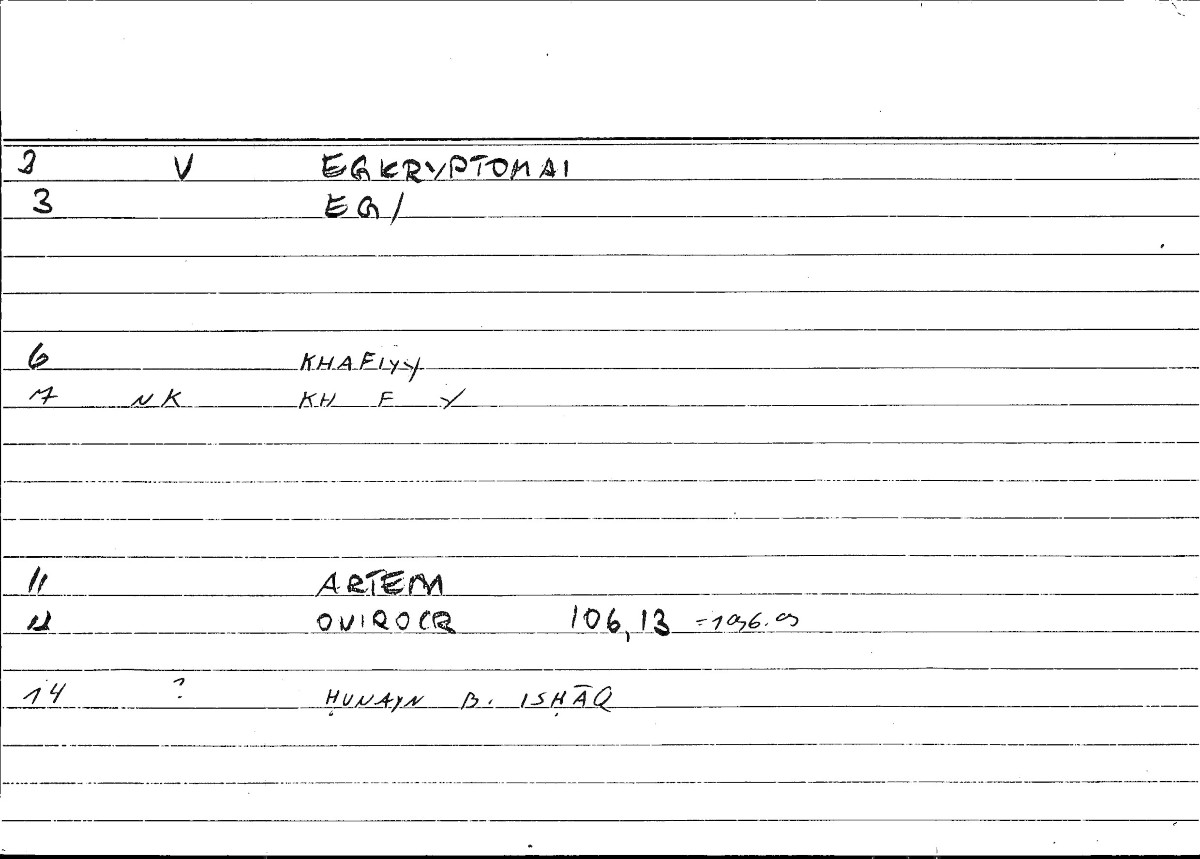 2 V EGKRYPTOMAI
3 EG/
6 KHAFIYY
7 NK KH F Y
11 ARTEM
12 OVIROCR 106,13
14 ? ḤUNAYN B. ISḤĀQ